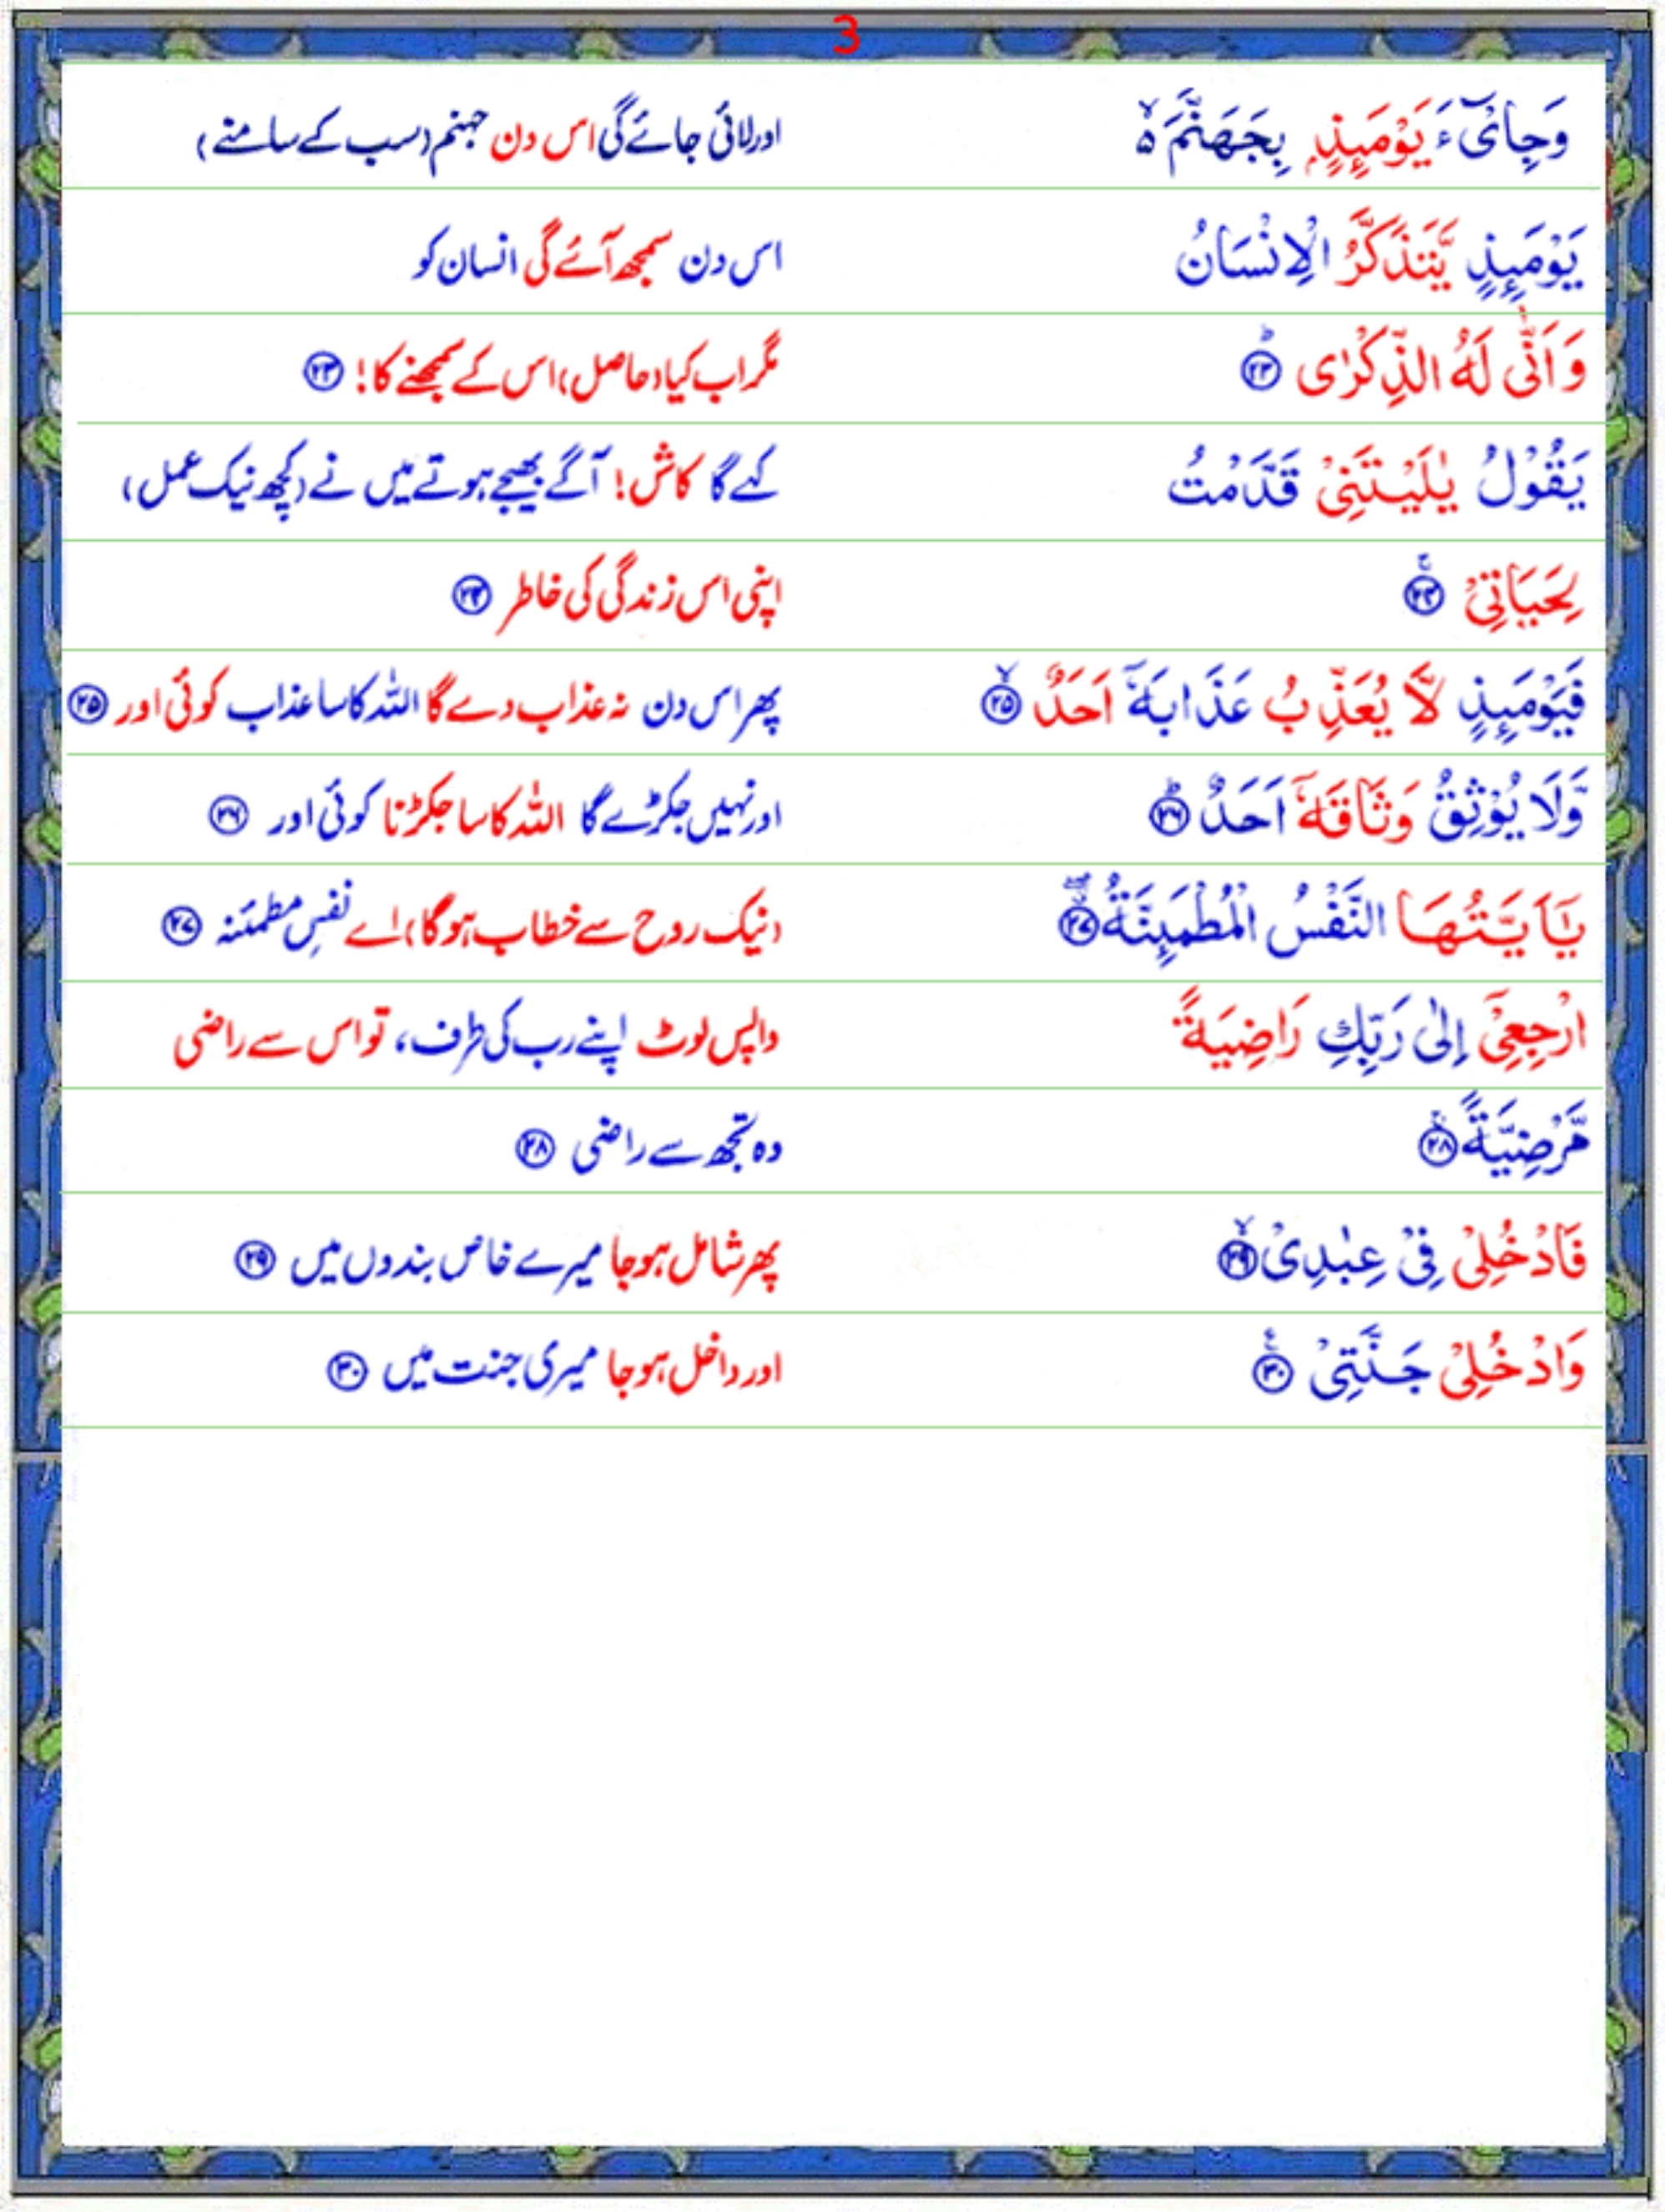 3
وَجِایْٓءَ یَوْمَىِٕذٍۭ بِجَهَنَّمَ ۙ۬ اورلائی جائے گی اس دن جہنم (سب کے سامنے)
یَوْمَىِٕذٍ یَّتَذَكَّرُ الْاِنْسَانُ اس دن سمجھ آئے گی انسان کو
وَ اَنّٰی لَهُ الذِّكْرٰی ؕ﴿۲۳﴾ مگر اب کیا (حاصل) اس کے سمجھنے کا! ﴿۲۳﴾
یَقُوْلُ یٰلَیْتَنِیْ قَدَّمْتُ کہے گا کاش! آگے بھیجے ہوتے میں نے (کچھ نیک عمل)
لِحَیَاتِیْ ۚ﴿۲۴﴾ اپنی اس زندگی کی خاطر ﴿۲۴﴾
فَیَوْمَىِٕذٍ لَّا یُعَذِّبُ عَذَابَهٗۤ اَحَدٌ ﴿ۙ۲۵﴾ پھر اس دن نہ عذاب دے گا اللہ کا سا عذاب کوئی اور ﴿۲۵﴾
وَّلَا یُوْثِقُ وَثَاقَهٗۤ اَحَدٌ ﴿ؕ۲۶﴾ اور نہیں جکڑے گا اللہ کا سا جکڑنا کوئی اور ﴿۲۶﴾
یٰۤاَیَّتُهَا النَّفْسُ الْمُطْمَىِٕنَّةُ ﴿۲۷﴾ (نیک روح سے خطاب ہوگا) اے نفسِ مطمئنہ ﴿۲۷﴾
ارْجِعِیْۤ اِلٰی رَبِّكِ رَاضِیَةً واپس لوٹ اپنے رب کی طرف، تو اس سے راضی
مَّرْضِیَّةً ﴿ۚ۲۸﴾ وہ تجھ سے راضی ﴿۲۸﴾
فَادْخُلِیْ فِیْ عِبٰدِیْ ﴿ۙ۲۹﴾ پھر شامل ہوجا میرے خاص بندوں میں ﴿۲۹﴾
وَادْخُلِیْ جَنَّتِیْ ﴿۳۰﴾ اور داخل ہوجا میری جنت میں ﴿۳۰﴾